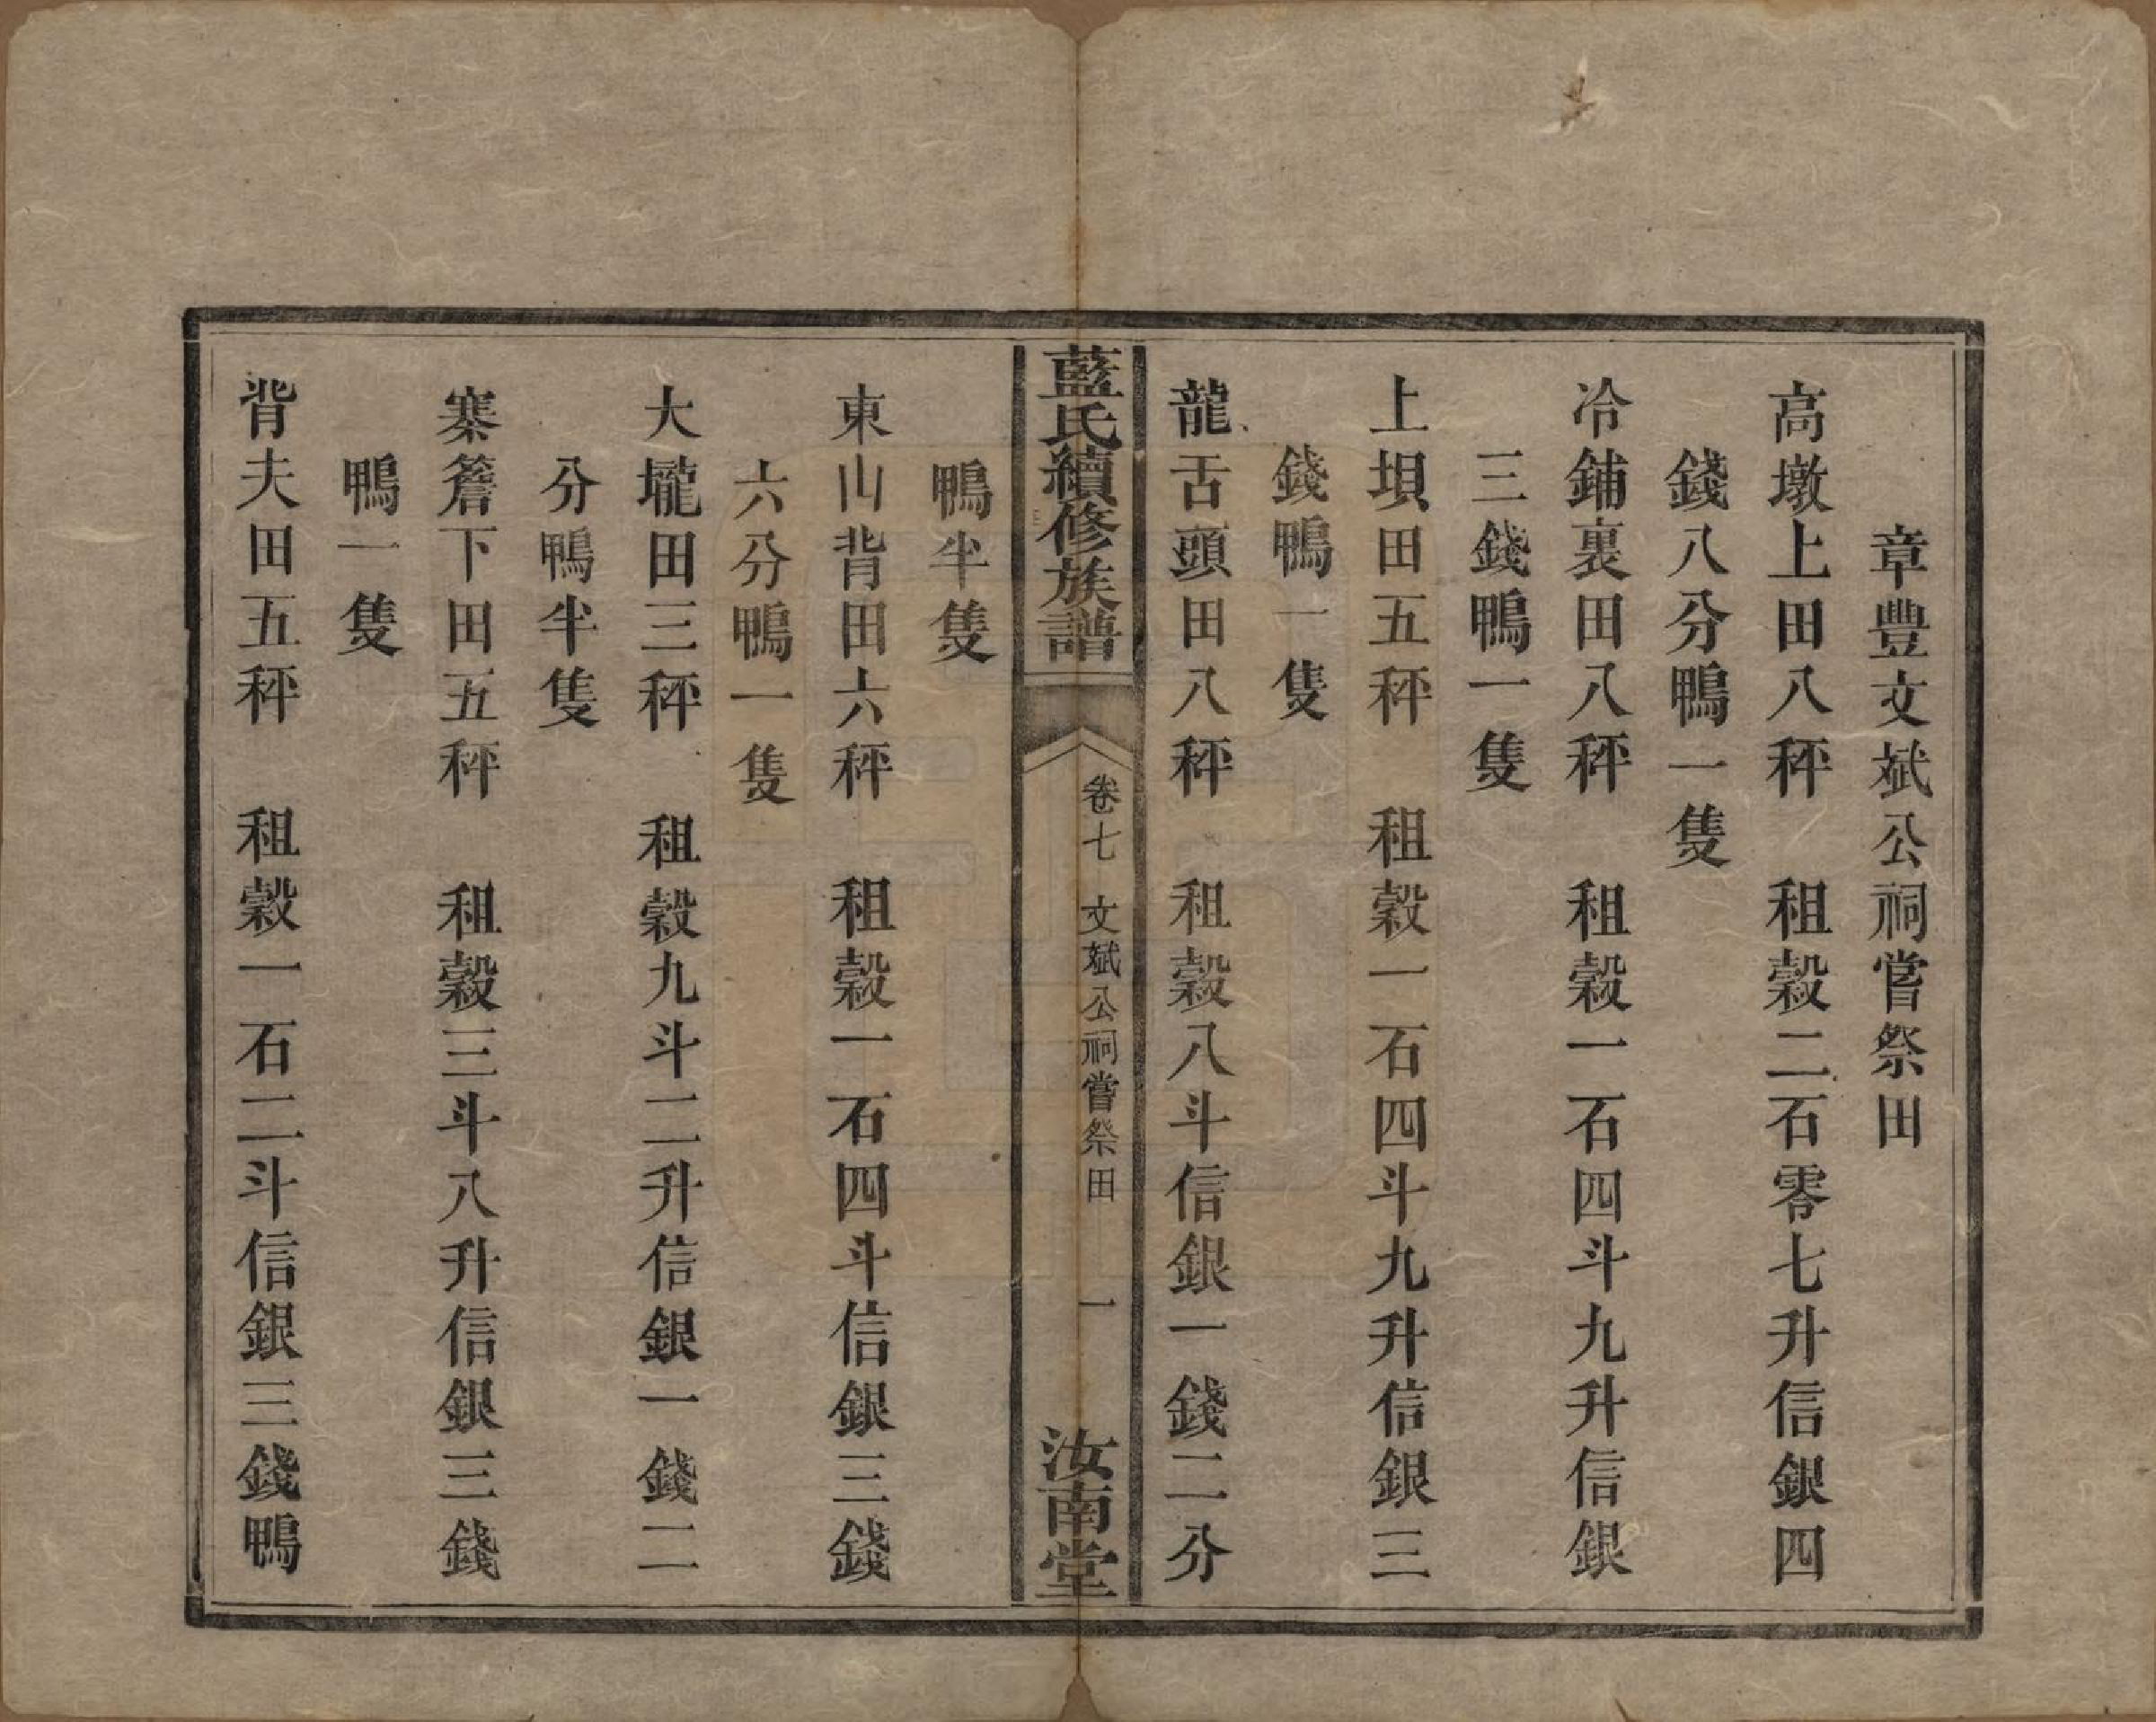 章豐文斌公祠嘗祭田
高墩上田八秤　租穀二石零七升信銀四
錢八分鴨一隻
冷鋪裏田八秤　租穀一石四斗九升信銀
三錢鴨一隻
上垻田五秤　租穀一石四斗九升信銀三
錢鴨一隻
龍舌頭田八秤　租穀八斗信銀一錢二分
藍氏續修族譜
卷七　文斌公祠嘗祭田　一
汝南堂
鴨半隻
東山背田六秤　租穀一石四斗信銀三錢
六分鴨一隻
大壠田三秤　租穀九斗二升信銀一錢二
分鴨半隻
寨簷下田五秤　租穀三斗八升信銀三錢
鴨一隻
背夫田五秤　租穀一石二斗信銀三錢鴨